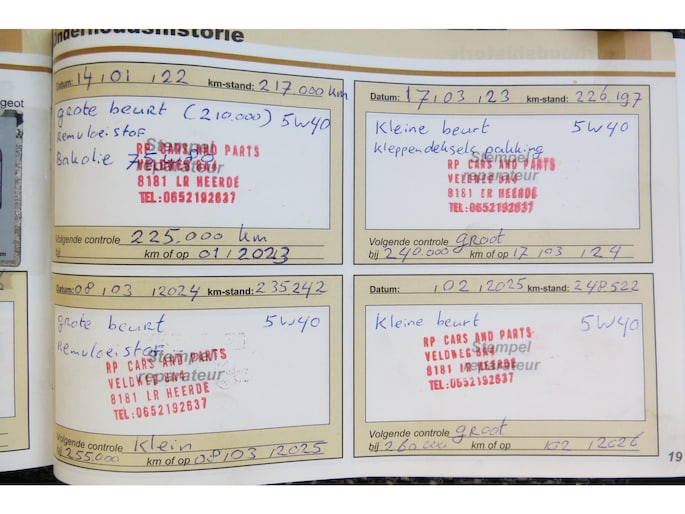 Onderhoudshistorie
Datum: 14 , 01 , 22 km-stand: 217.000 km
grote beurt (210.000) 5W40
Remvloeistof
Bakolie
Stempel
reparateur
RP CARS AND PARTS
VELDWEG 8N4
8181 LR HEERDE
TEL:0652192637
Volgende controle 225.000 km
bij km of op 01 / 2023
Datum: 17 , 03 , 23 km-stand: 226.197
Kleine beurt 5W40
Kleppendeksels pakking
Stempel
reparateur
RP CARS AND PARTS
VELDWEG 8N4
8181 LR HEERDE
TEL:0652192637
Volgende controle groot
bij 240.000 km of op 17 , 03 , 24
Datum: 08 , 03 , 2024 km-stand: 235242
grote beurt 5W40
Remvloeistof
Stempel
reparateur
RP CARS AND PARTS
VELDWEG 8N4
8181 LR HEERDE
TEL:0652192637
Volgende controle Klein
bij 255.000 km of op 08 , 03 , 2025
Datum: , 02 , 2025 km-stand: 248522
Kleine beurt 5W40
Stempel
reparateur
RP CARS AND PARTS
VELDWEG 8N4
8181 LR HEERDE
TEL:0652192637
Volgende controle groot
bij 260.000 km of op , 02 , 2026
19